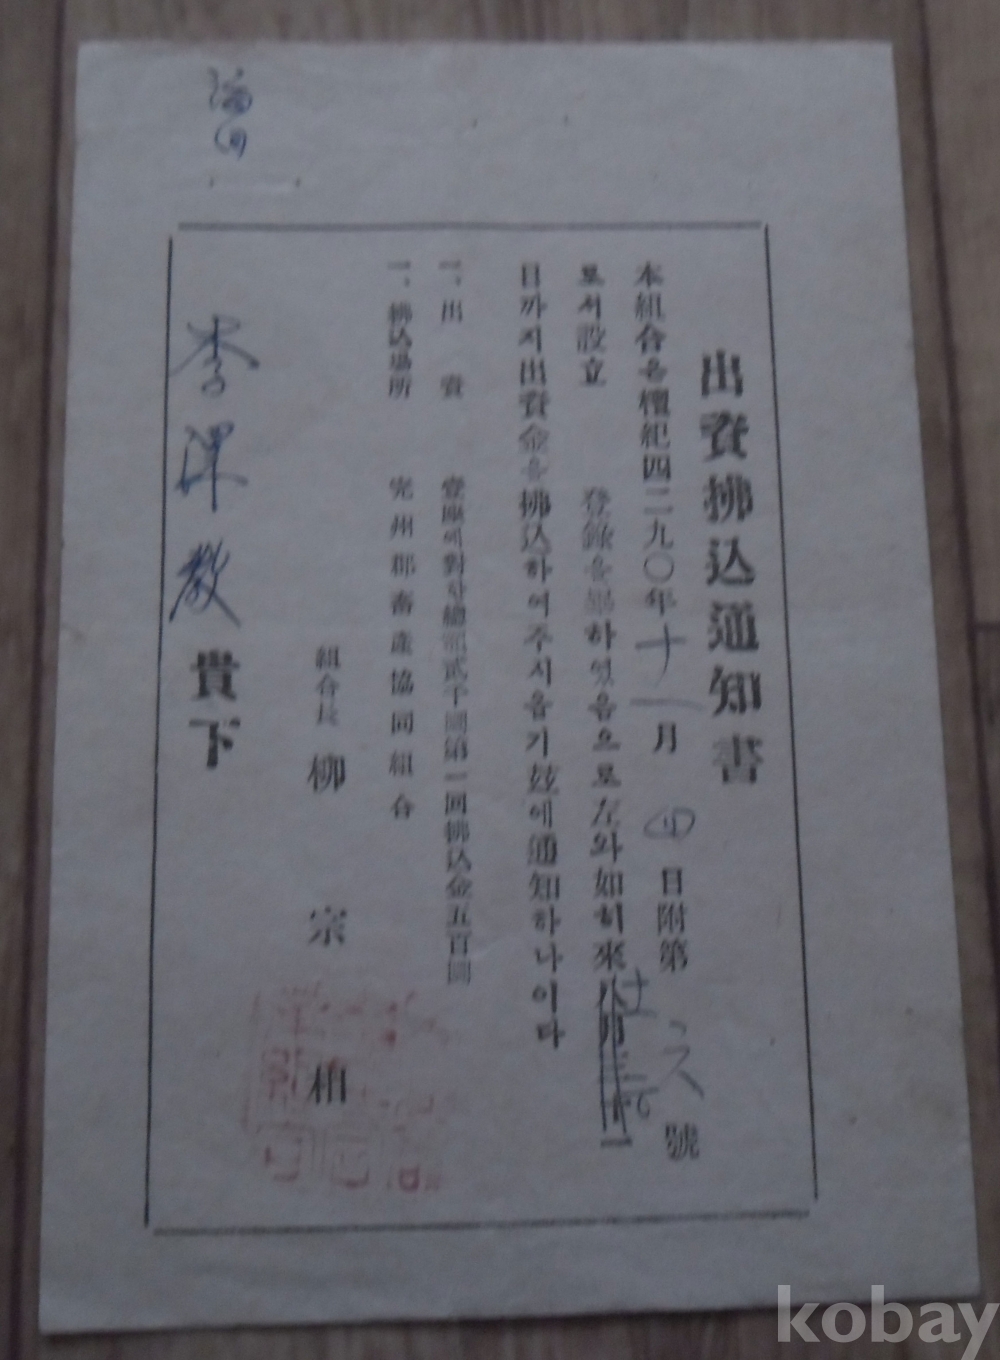 出資拂込通知書
本組合은檀紀四二九〇年十一月 四 日附第 六 號
로서設立 登錄을畢하였음으로左와如히來
日까지出資金을拂込하여주시옵기玆에通知하나이다
一、出 資 壹座에對한總額貳千圜第一回拂込金五百圜
一、拂込場所 完州郡畜產協同組合
組合長 柳 宗 柏
李 澤 敎 貴下
kobay